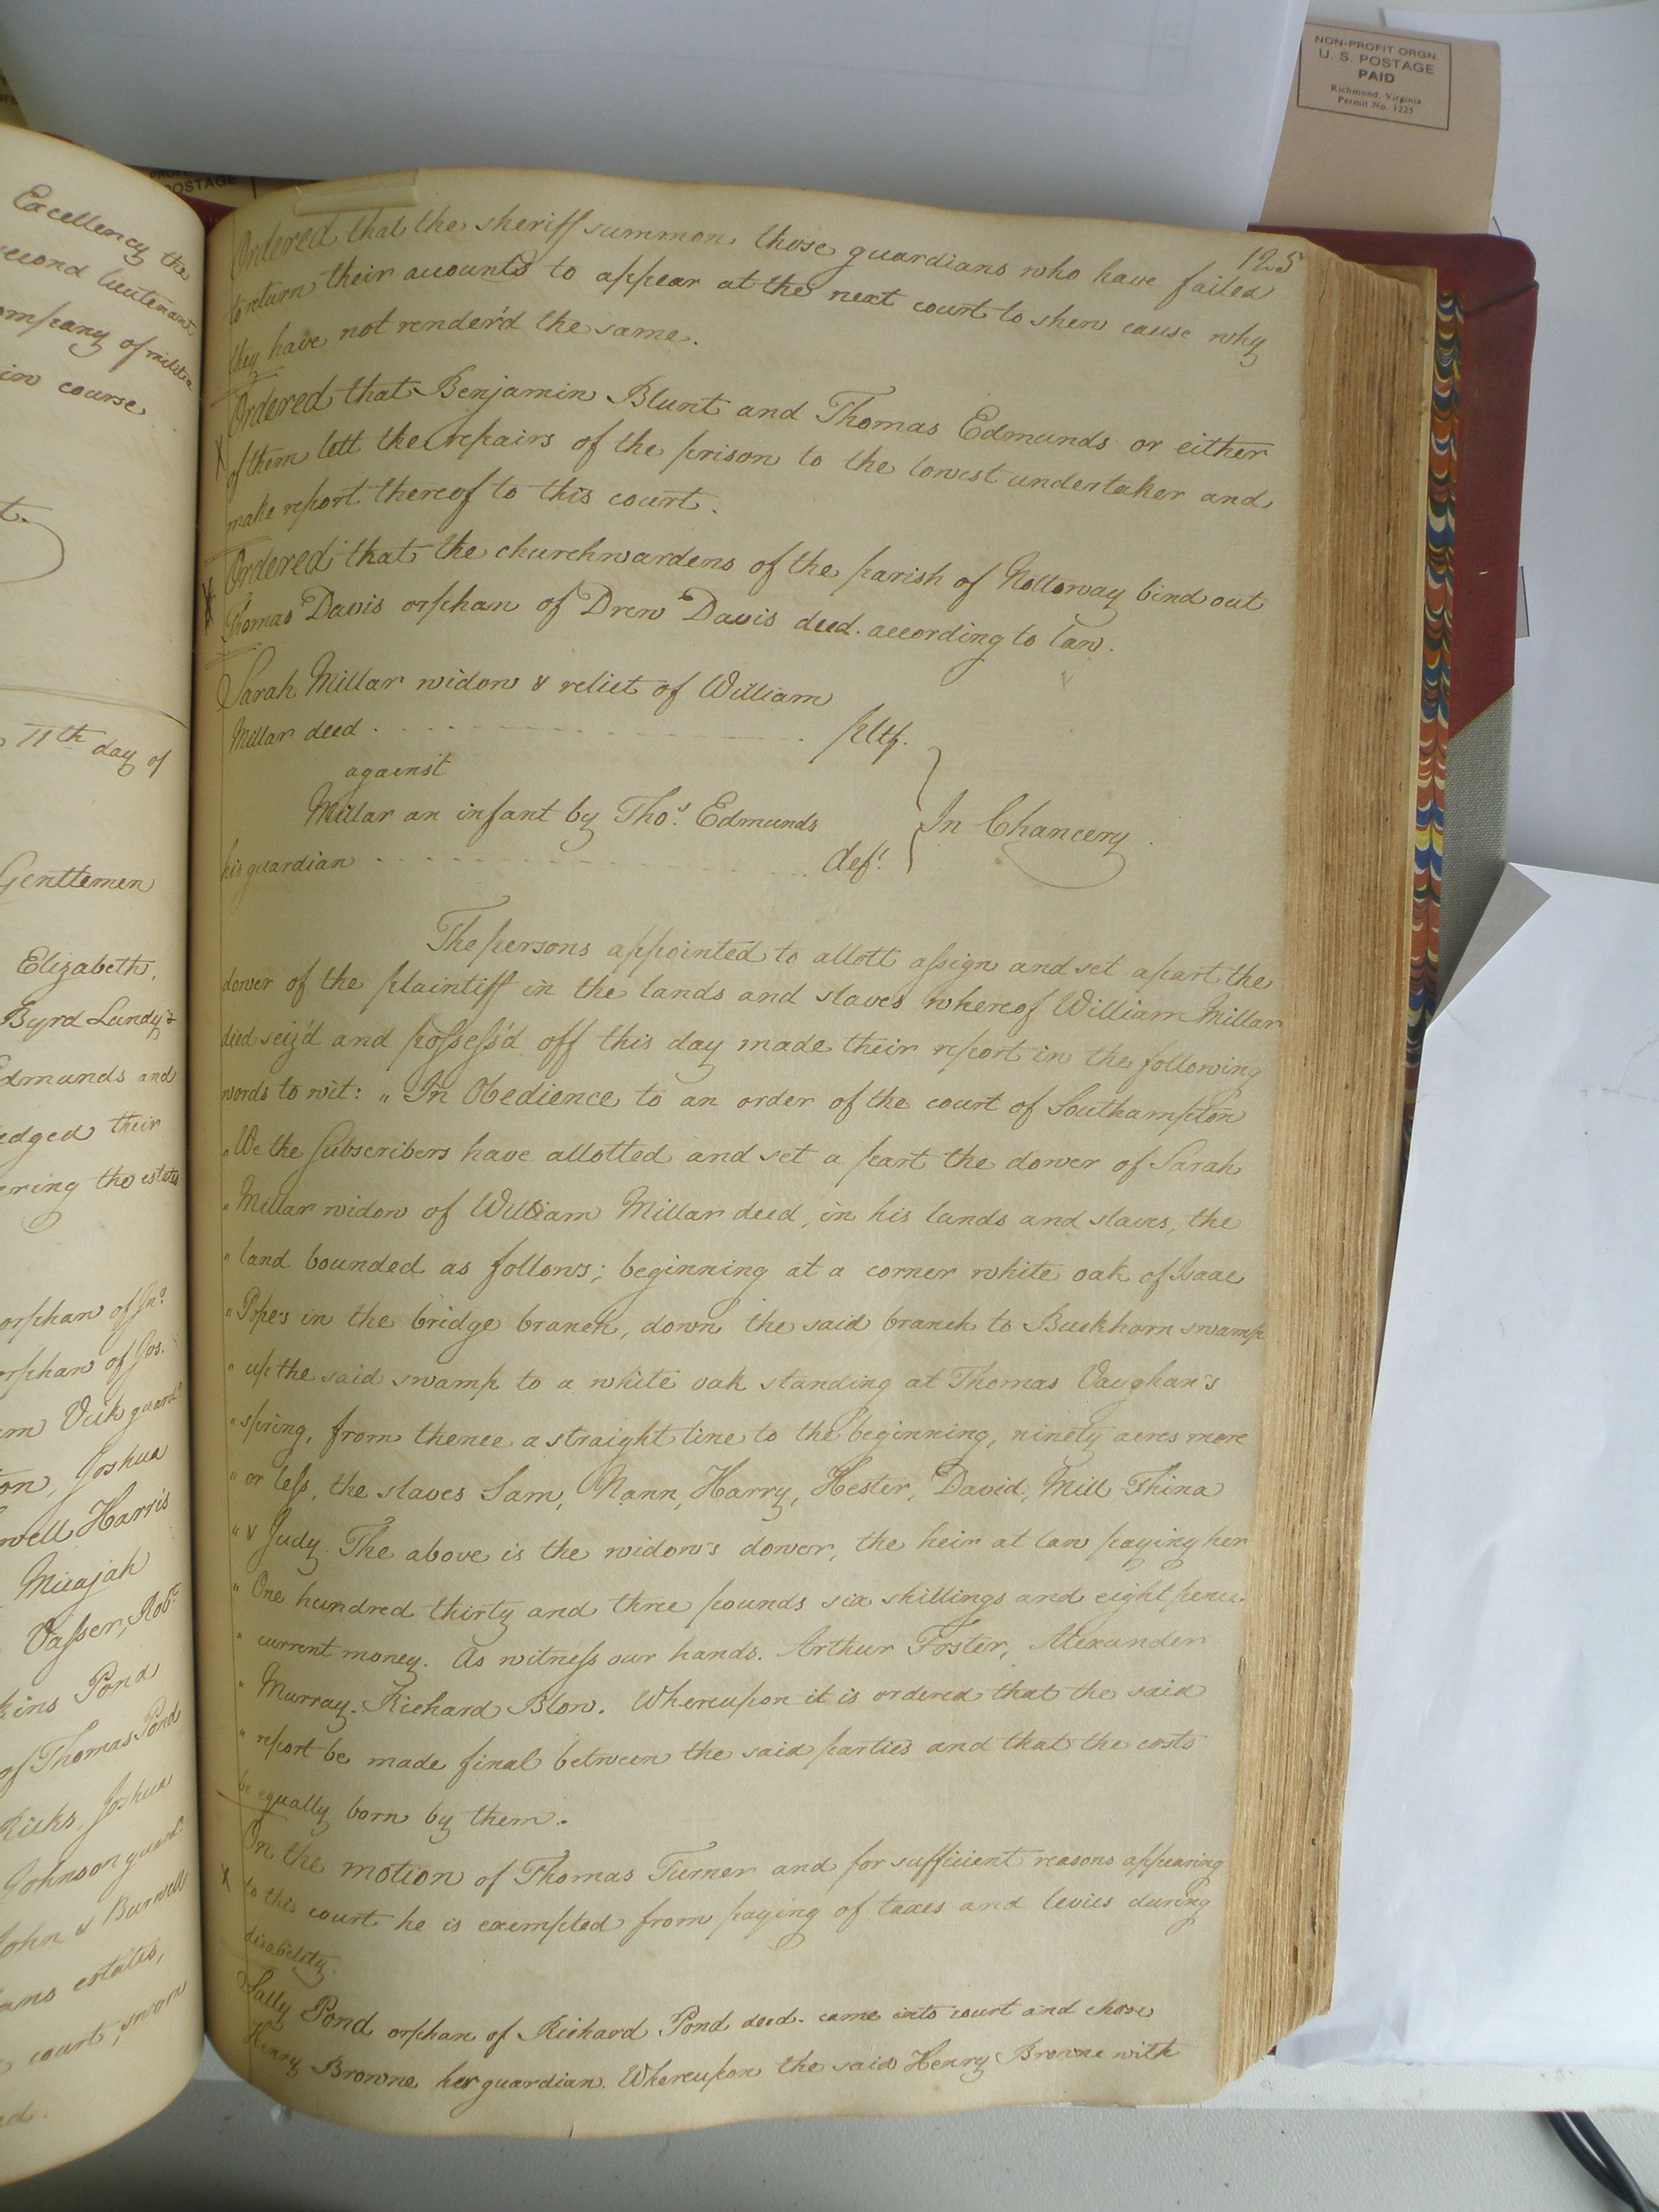 NON-PROFIT ORGN.
U. S. POSTAGE
PAID
Richmond, Virginia
Permit No. 1225
POSTAGE
Excellency the
second lieutenant
company of militia
in course
11th day of
Gentlemen
Elizabeth,
Byrd Lundy &
Edmunds and
their
the estates
orphan of Jno.
orphan of Jos.
Vick guard
Joshua
Harris
Micajah
Vasser, Robt.
Pond
of Thomas Pond
Ricks, Joshua
Johnson guard
John & Burwell
estates,
court, sworn
125
Ordered that the sheriff summon those guardians who have failed
to return their accounts to appear at the next court to shew cause why
they have not render'd the same.
Ordered that Benjamin Blunt and Thomas Edmunds or either
of them lett the repairs of the prison to the lowest undertaker and
make report thereof to this court.
Ordered that the churchwardens of the parish of Nottoway bind out
Thomas Davis orphan of Drew Davis deced. according to law.
Sarah Millar widow & relict of William
Millar deced . . . pltf.
against
Millar an infant by Thos. Edmunds
his guardian . . . deft.
In Chancery
The persons appointed to allott assign and set apart the
dower of the plaintiff in the lands and slaves whereof William Millar
died seiz'd and possess'd off this day made their report in the following
words to wit: "In Obedience to an order of the court of Southampton
"We the Subscribers have allotted and set a part the dower of Sarah
"Millar widow of William Millar deced, in his lands and slaves, the
"land bounded as follows; beginning at a corner white oak of Isaac
"Pope's in the bridge branch, down the said branch to Buckhorn swamp
"up the said swamp to a white oak standing at Thomas Vaughan's
"spring, from thence a straight line to the beginning, ninety acres more
"or less, the slaves Sam, Nann, Harry, Hester, David, Mill Thina
"& Judy. The above is the widow's dower, the heir at law paying her
"One hundred thirty and three pounds six shillings and eight pence
"current money. As witness our hands. Arthur Foster, Alexander
"Murray. Richard Blow. Whereupon it is ordered that the said
"report be made final between the said parties and that the costs
be equally born by them.
On the motion of Thomas Turner and for sufficient reasons appearing
to this court he is exempted from paying of taxes and levies during
disability.
Sally Pond orphan of Richard Pond deced. came into court and chose
Henry Browne her guardian. Whereupon the said Henry Browne with